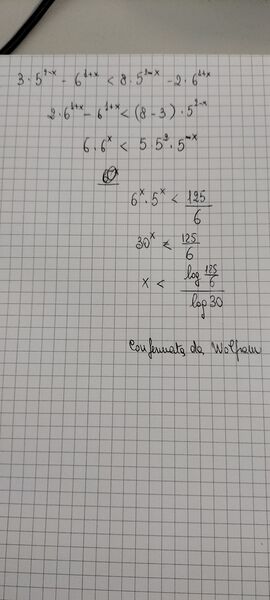 3 · 5^{2-x} - 6^{1+x} < 8 · 5^{2-x} - 2 · 6^{1+x}
2 · 6^{1+x} - 6^{1+x} < (8 - 3) · 5^{2-x}
6 · 6^x < 5 5^2 · 5^{-x}
6^x · 5^x < 125/6
30^x < 125/6
x < log 125/6 / log 30
Confermata da Wolfram